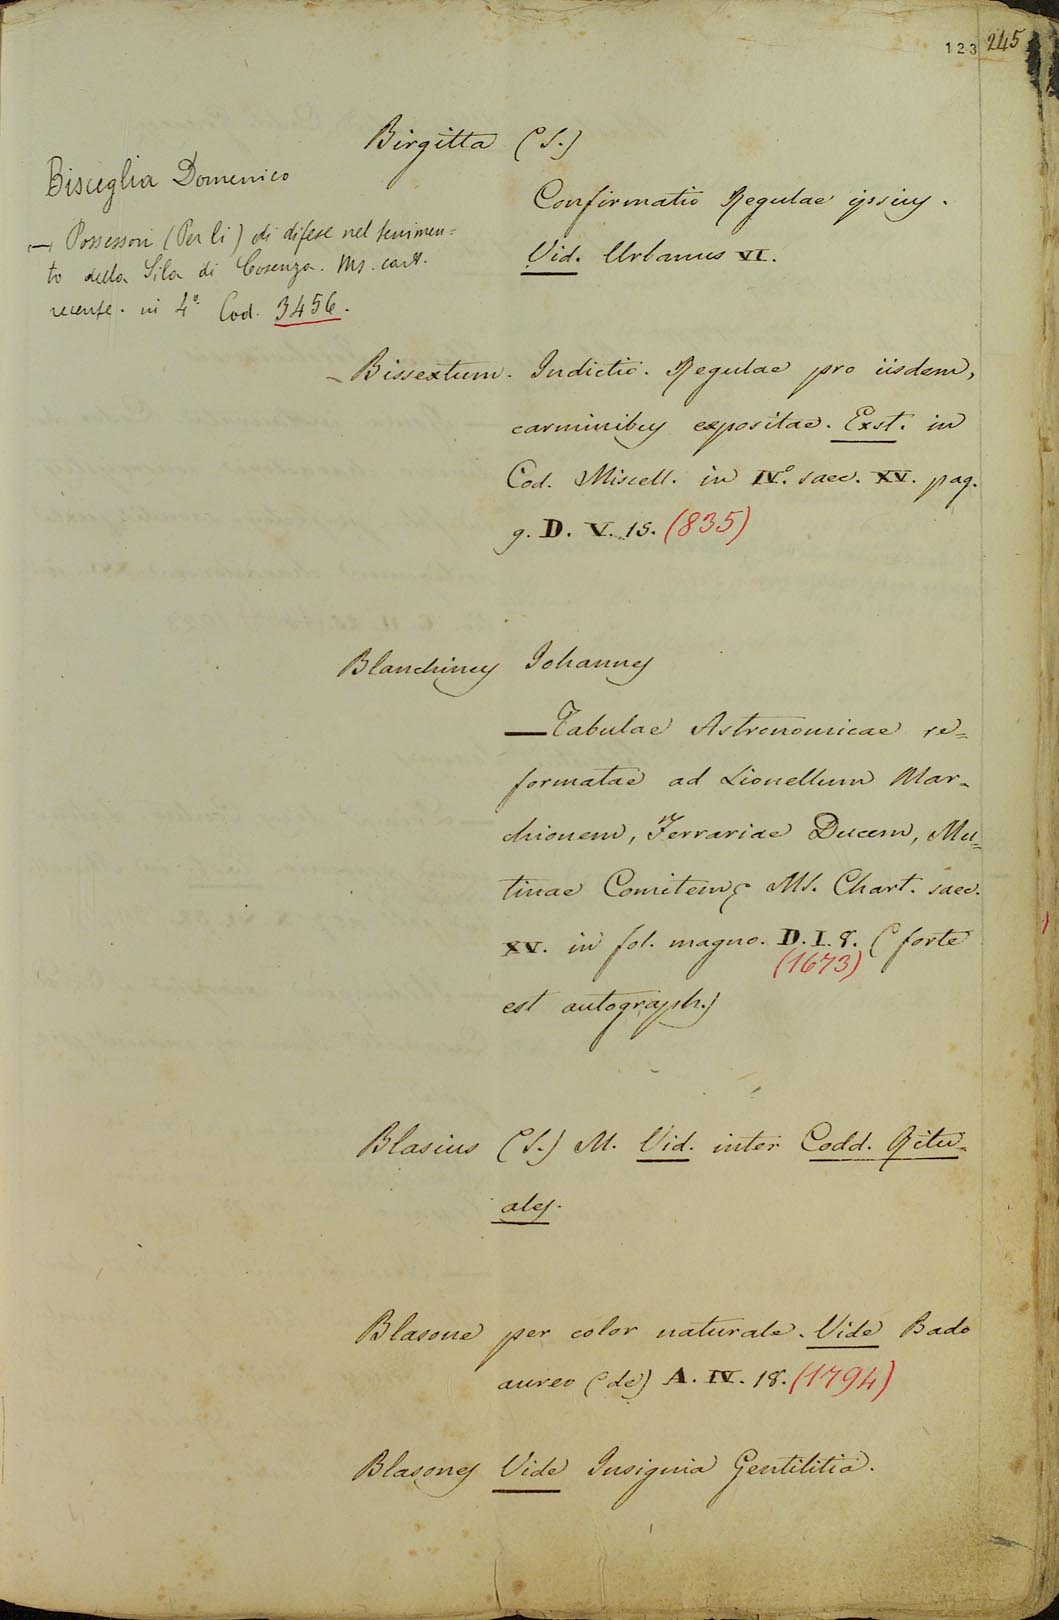 123 245
Birgitta (S.)
Confirmatio Regulae ipsius.
Vid. Urbanus VI.
Bisceglia Domenico
— Possessori (Per li) di difese nel tenimen=
to della Sila di Cosenza. Ms. cart.
recente. in 4º Cod. 3456.
Bissextum. Indictio. Regulae pro iisdem,
carminibus expositae. Exst. in
Cod. Miscell. in IVº. saec. XV. pag.
9. D. V. 15. (835)
Blanchines Johannes
— Tabulae Astronomicae re=
formatae ad Lionellum Mar=
chionem, Ferrariae Ducem, Mu=
tinae Comitem, Ms. Chart. saec.
XV. in fol. magno. D. I. 8. (forte
(1673)
est autograph.)
Blasius (S.) M. Vid. inter Codd. Ritu=
ales.
Blasone per color naturale. Vide Bado
aureo (de) A. IV. 18. (1794)
Blasones Vide Insignia Gentilitia.